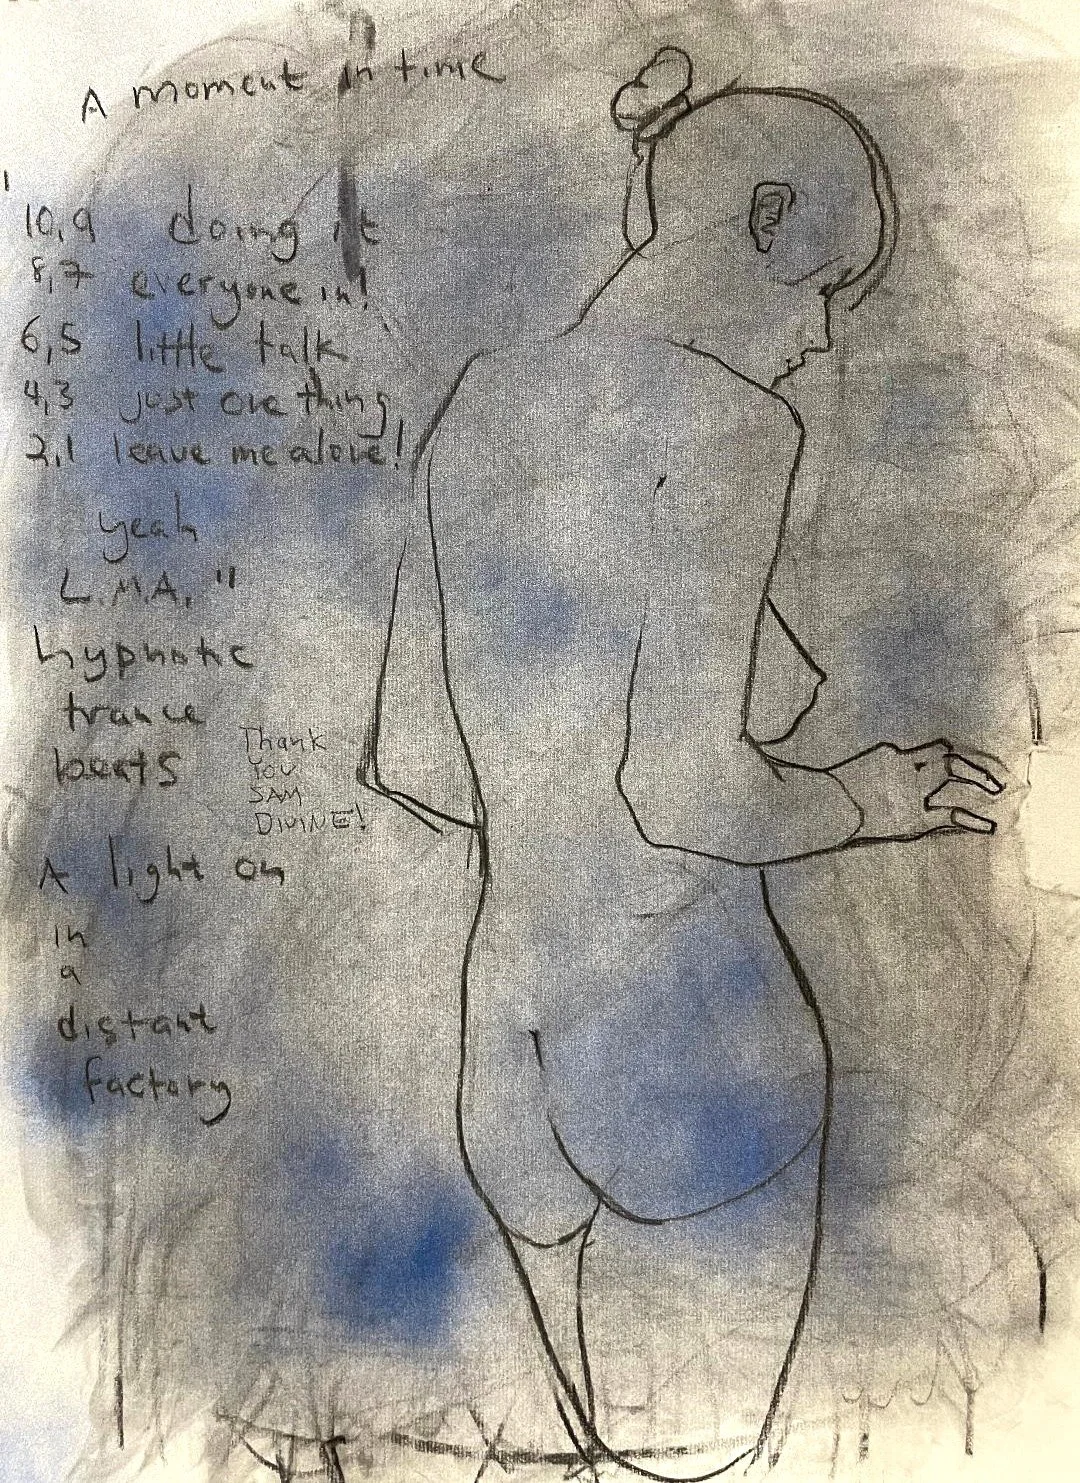 A moment in time
10,9 doing it
8,7 everyone in!
6,5 little talk
4,3 just one thing
2,1 leave me alone!
yeah
L.M.A. "
hypnotic
trance
beats
Thank
You
SAM
DIVINE!
A light on
in
a
distant
factory